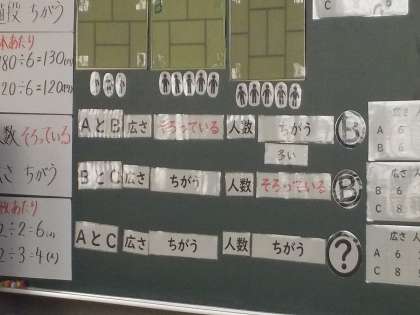 値段 ちがう
本あたり
780÷6=130(円)
720÷6=120(円)
人数 そろっている
広さ ちがう
数あたり
2÷2=6(人)
2÷3=4(人)
AとB 広さ そろっている 人数 ちがう B
多い
BとC 広さ ちがう 人数 そろっている B
AとC 広さ ちがう 人数 ちがう ?
C
広さ
A 6
B 6
広さ
B 6
C 8
広さ 人
A 6 3
C 8